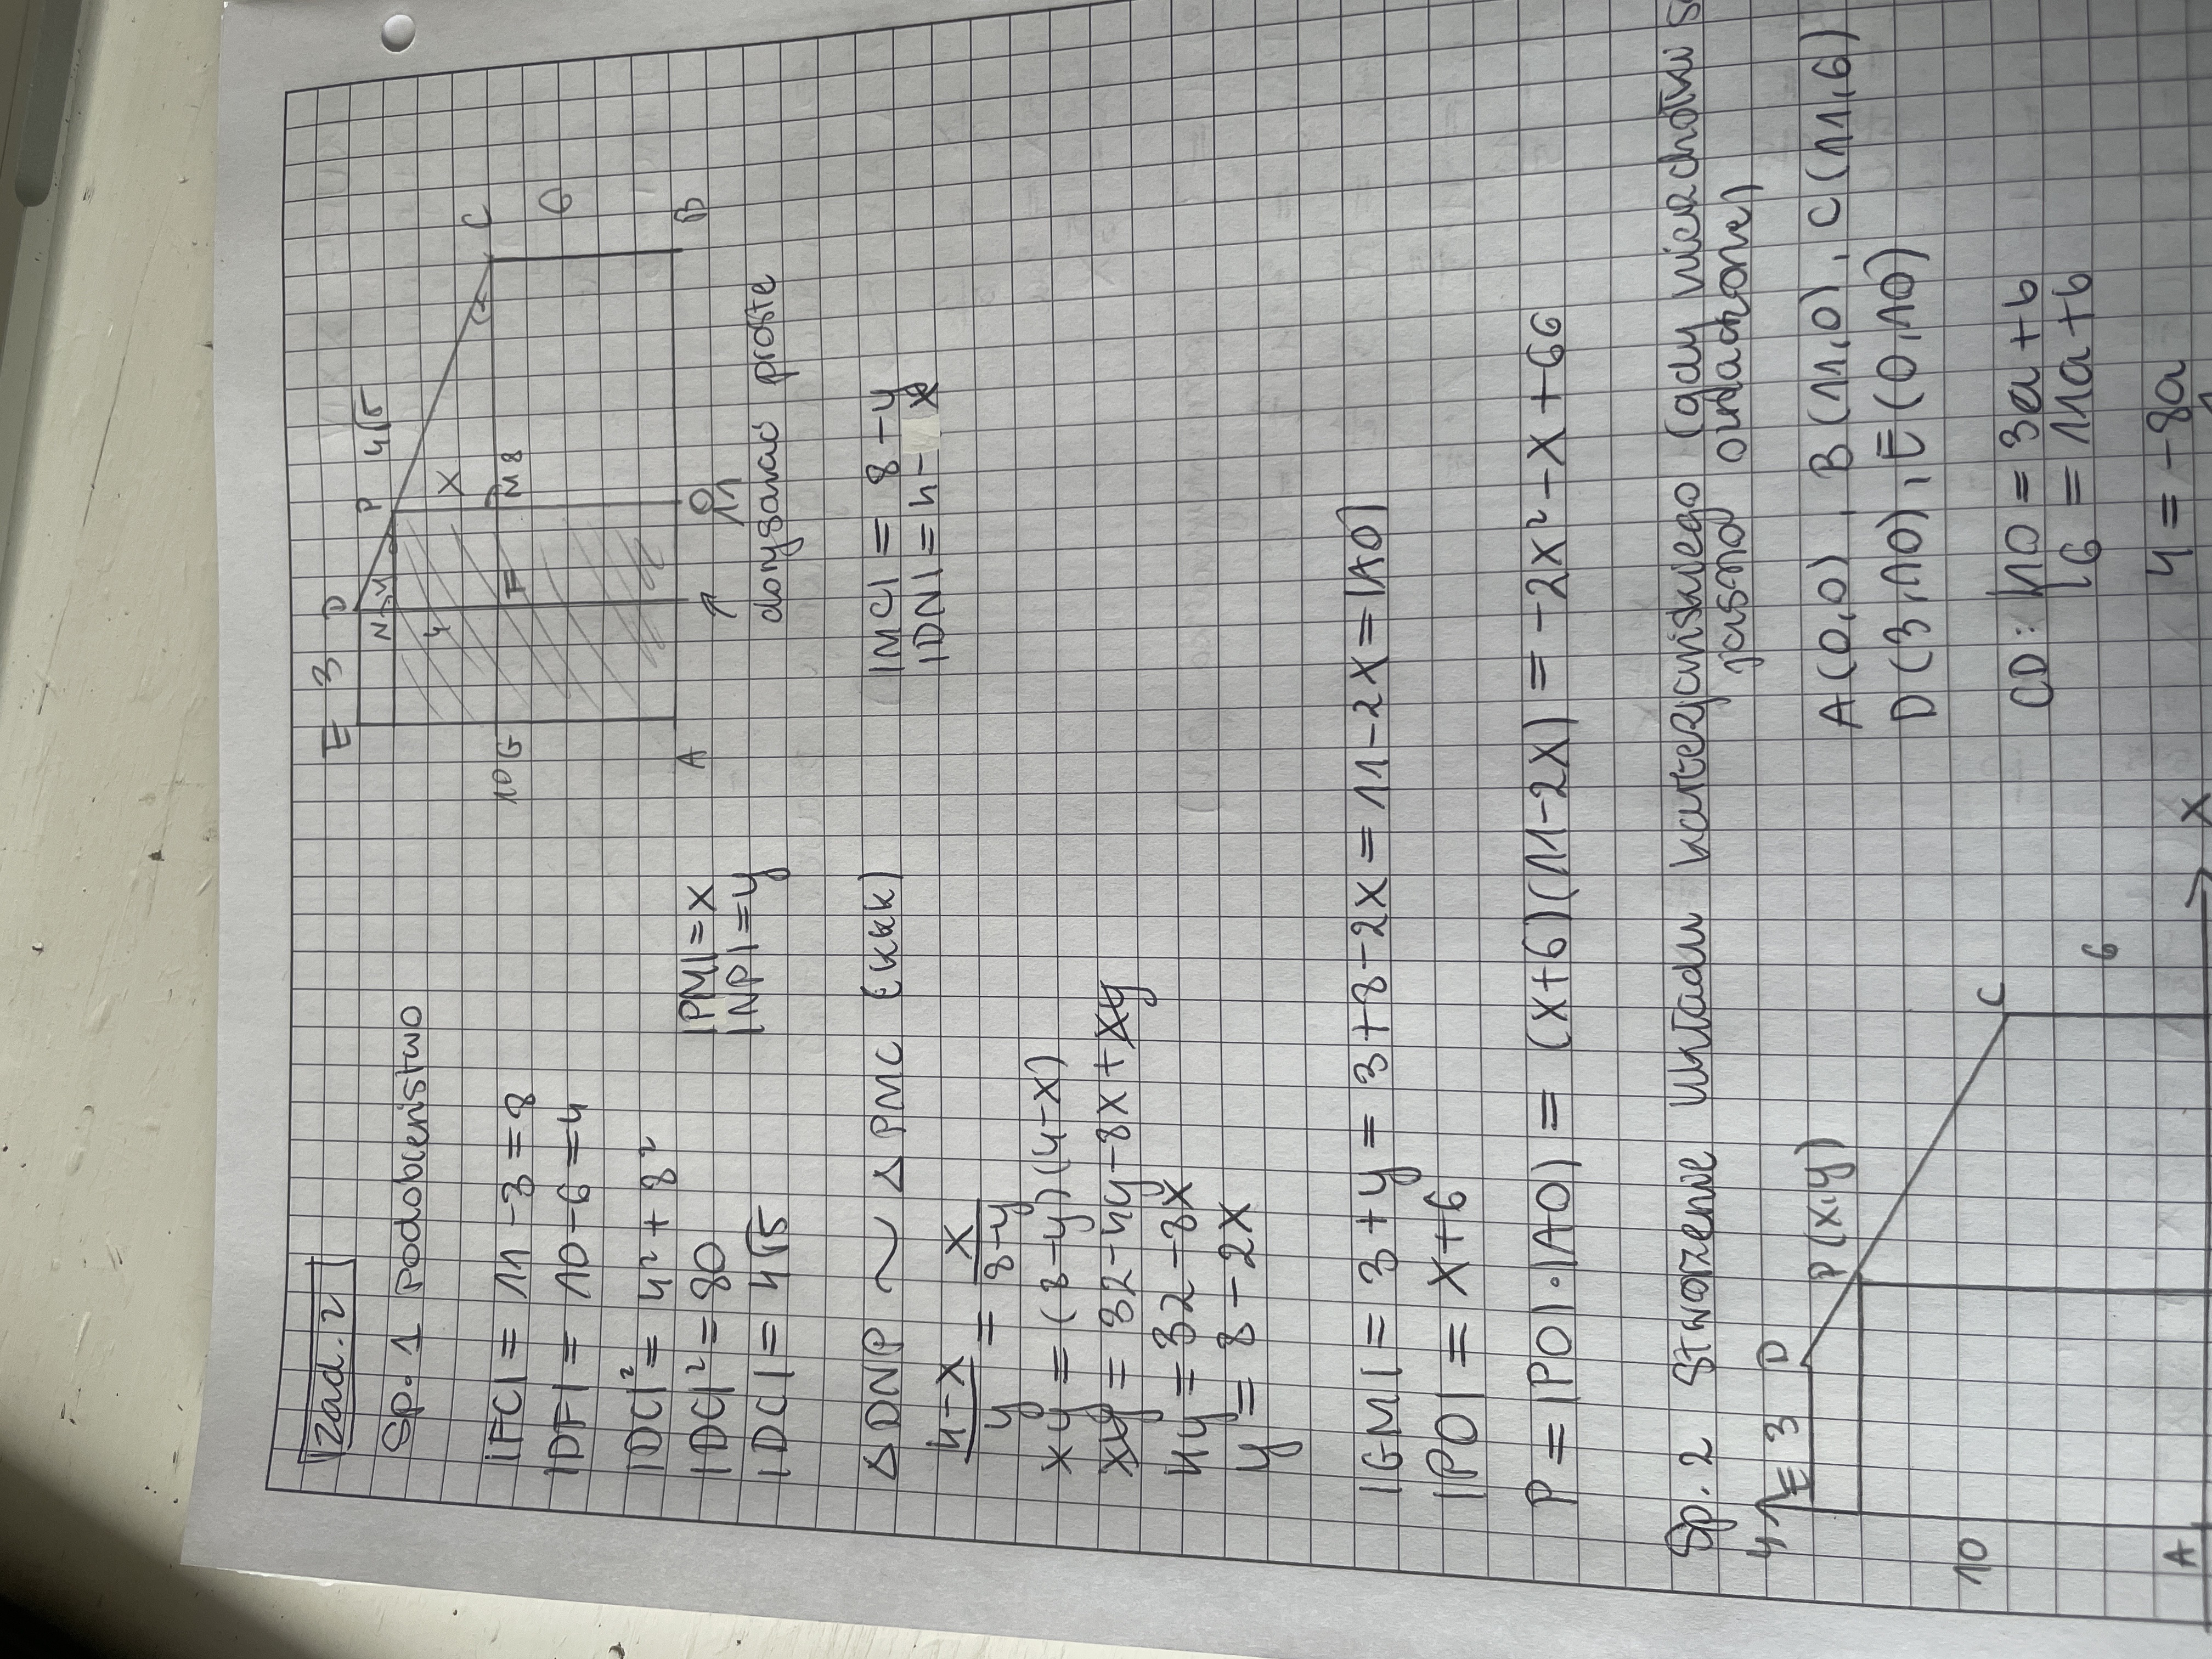 Zad. 2
Sp. 1 Podobieństwo
E 3 D P 4√5
N y
4 X C
10 G F M 8 6
A O B
11
↑
dorysować proste
|FC| = 11 - 3 = 8
|DF| = 10 - 6 = 4
|DC|² = 4² + 8²
|DC|² = 80
|DC| = 4√5
|PM| = x
|NP| = y
△DNP ~ △PMC (kkk)
|MC| = 8 - y
|DN| = 4 - x
4-x/y = x/8-y
xy = (8-y)(4-x)
xy = 32 - 4y - 8x + xy
4y = 32 - 8x
y = 8 - 2x
|GM| = 3 + y = 3 + 8 - 2x = 11 - 2x = |AO|
|PO| = x + 6
P = |PO| · |AO| = (x+6)(11-2x) = -2x² - x + 66
Sp. 2 Stworzenie układu kartezjańskiego (gdy wierzchołki są
jasno oznaczone)
y E 3 D
P(x,y)
C
10 6
A X
A(0,0), B(11,0), C(11,6)
D(3,10), E(0,10)
CD: 10 = 3a + b
6 = 11a + b
4 = -8a